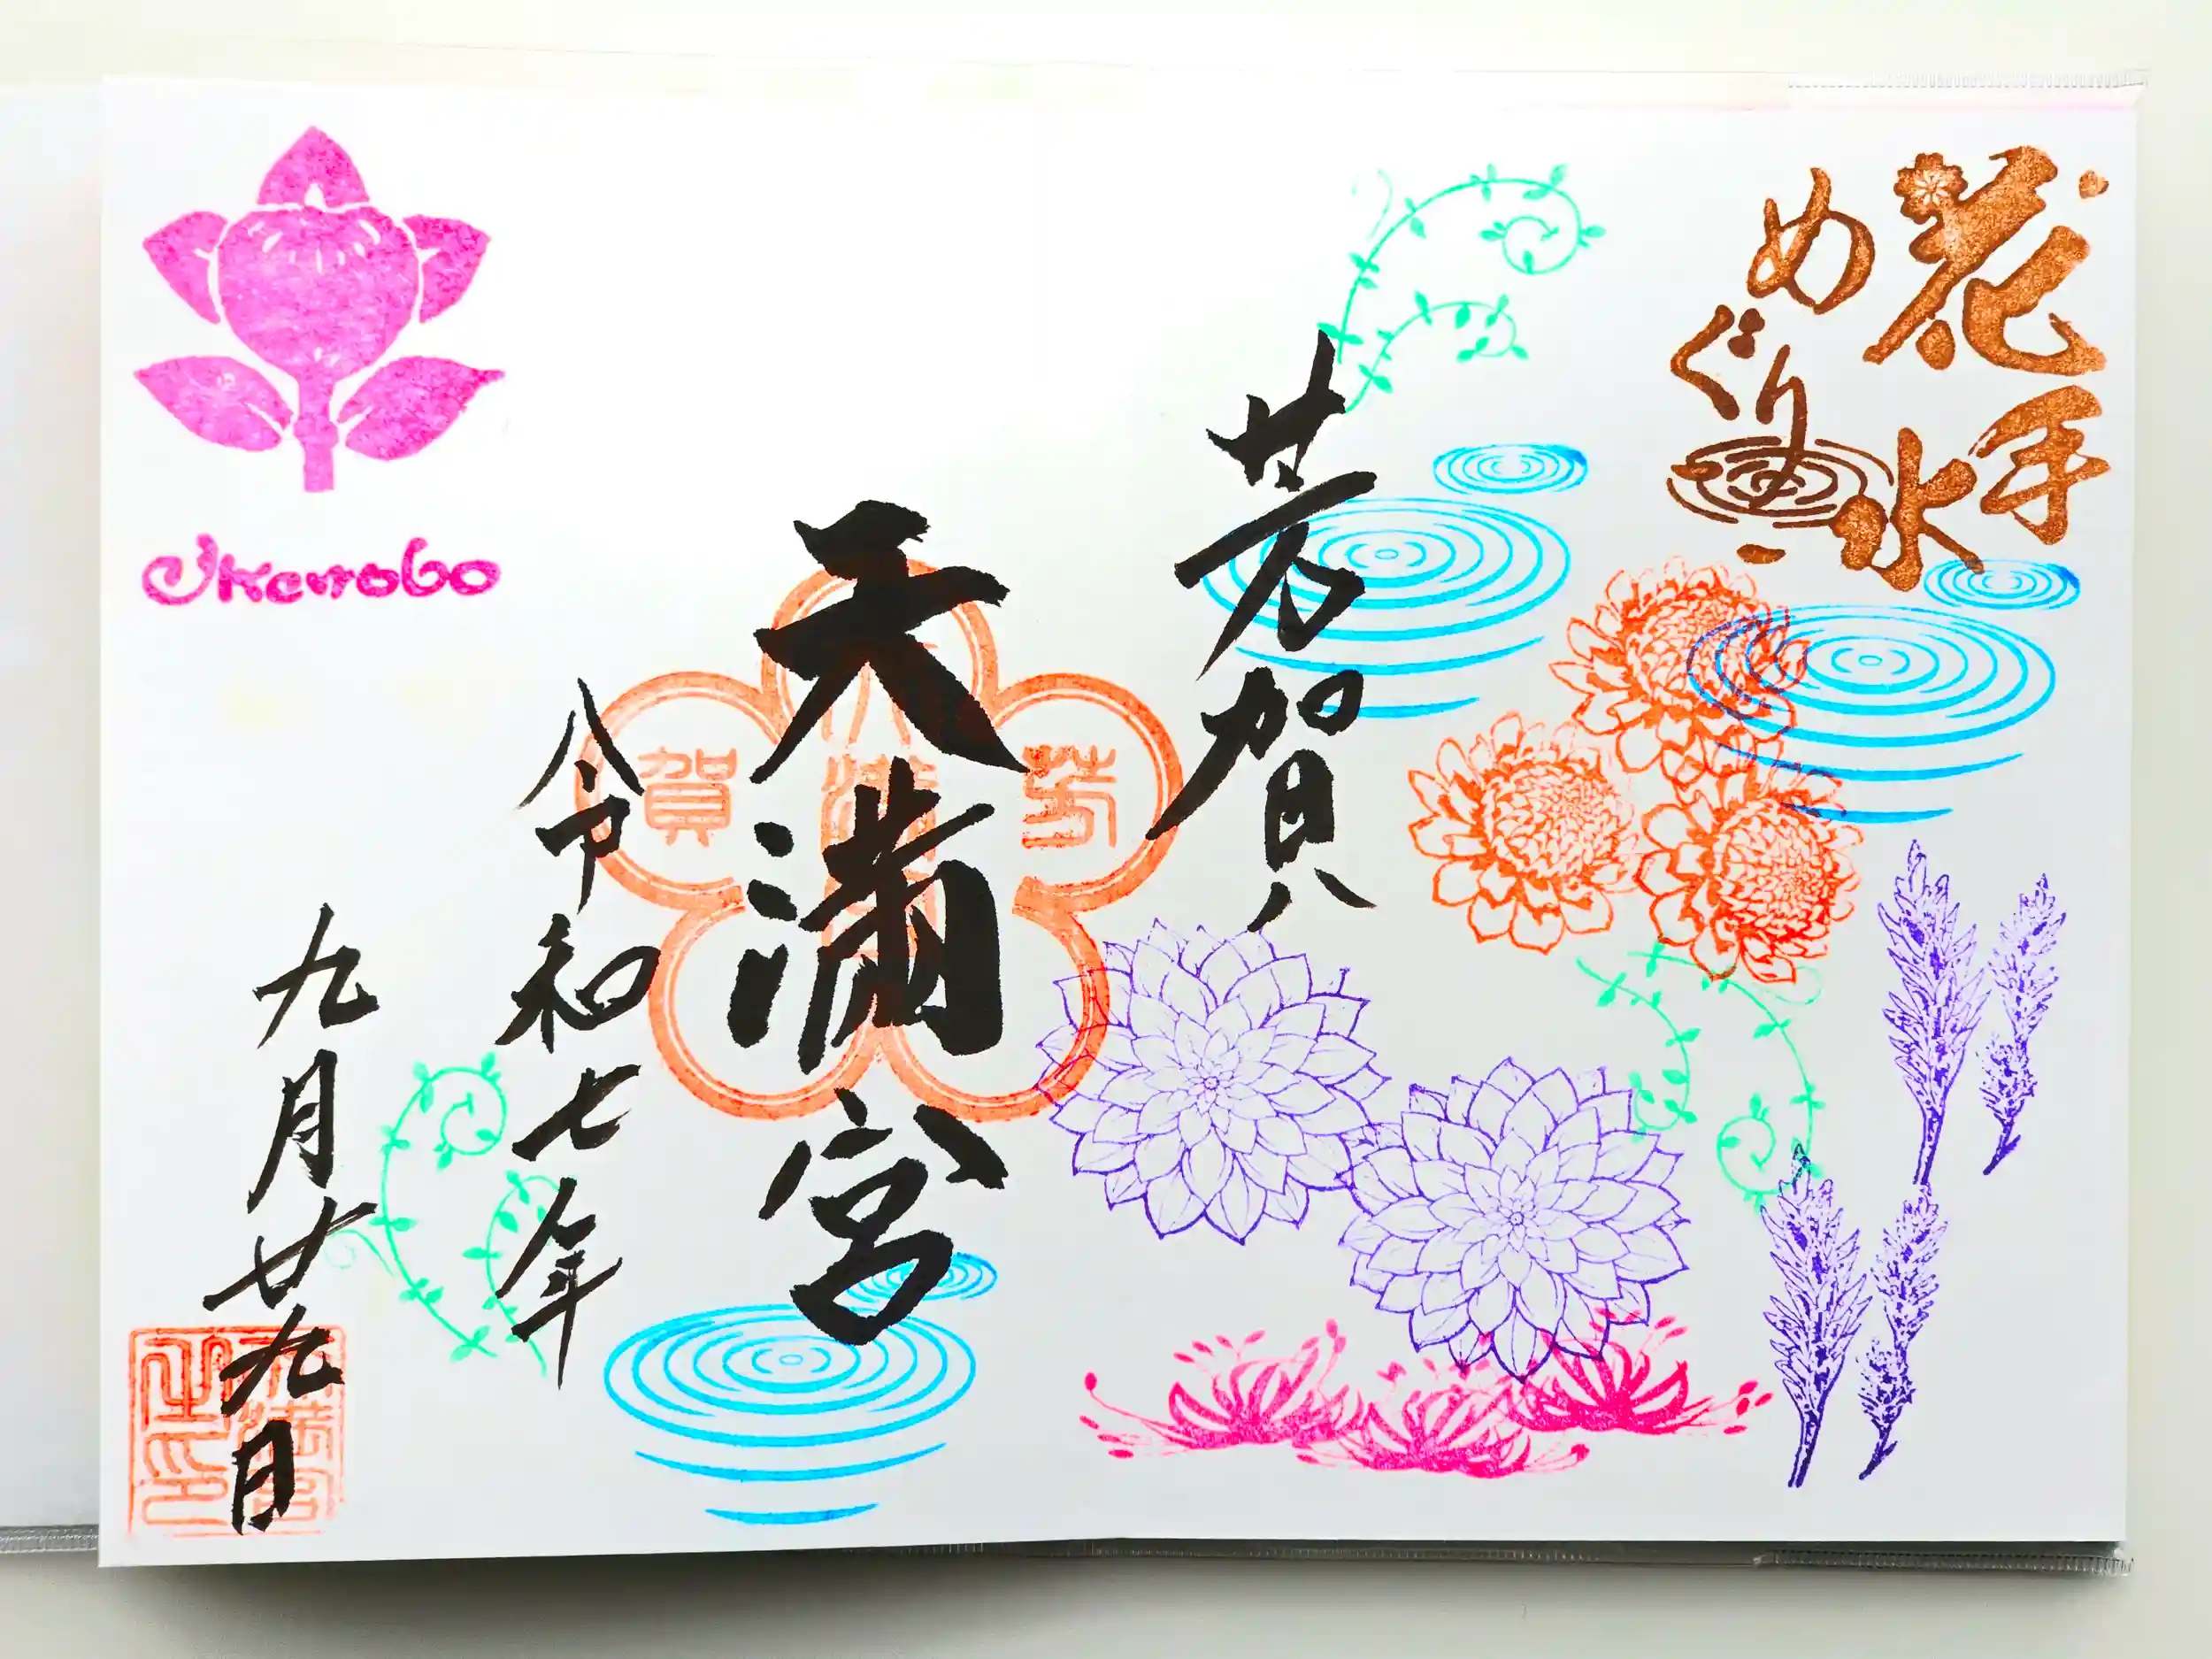 花手水
めぐり
芳賀
天満宮
令和七年
九月廿九日
芳
賀
Ikenobo